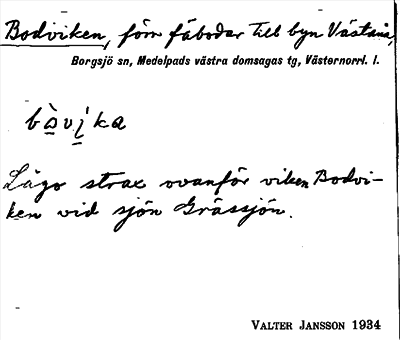 Bodviken, förr fäbodar till byn Västanå,
Borgsjö sn, Medelpads västra domsagas tg, Västernorrl. l.
bɔ̀vi̱ka
Lågo strax ovanför viken Bodvi-
ken vid sjön Grässjön.
VALTER JANSSON 1934